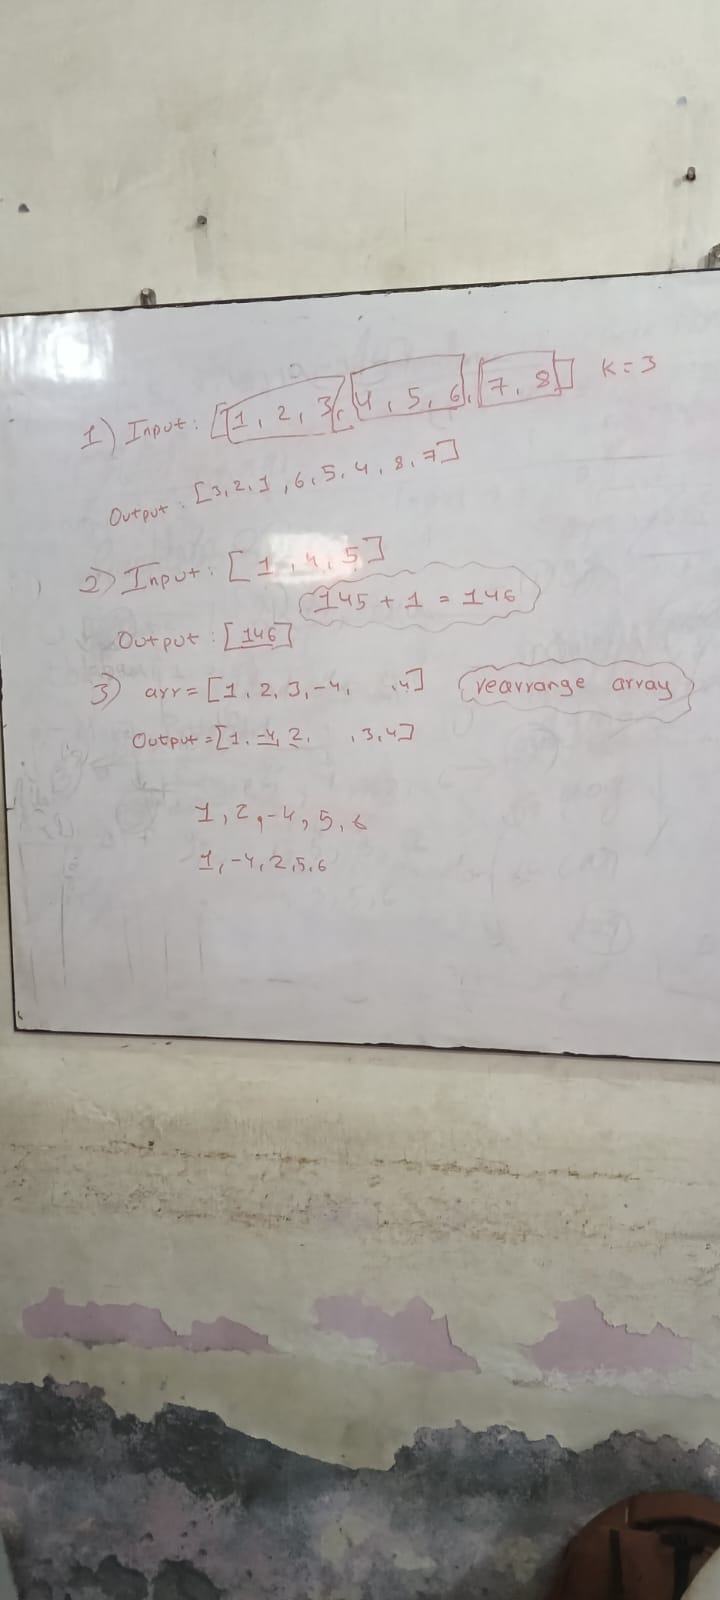 1) Input: [1, 2, 3, 4, 5, 6, 7, 8] K=3
Output: [3, 2, 1, 6, 5, 4, 8, 7]
2) Input: [1, 4, 5]
145 + 1 = 146
Output: [146]
3) arr = [1, 2, 3, -4, , 4] rearrange array
Output = [1, -4, 2, , 3, 4]
1, 2, -4, 5, 6
1, -4, 2, 5, 6